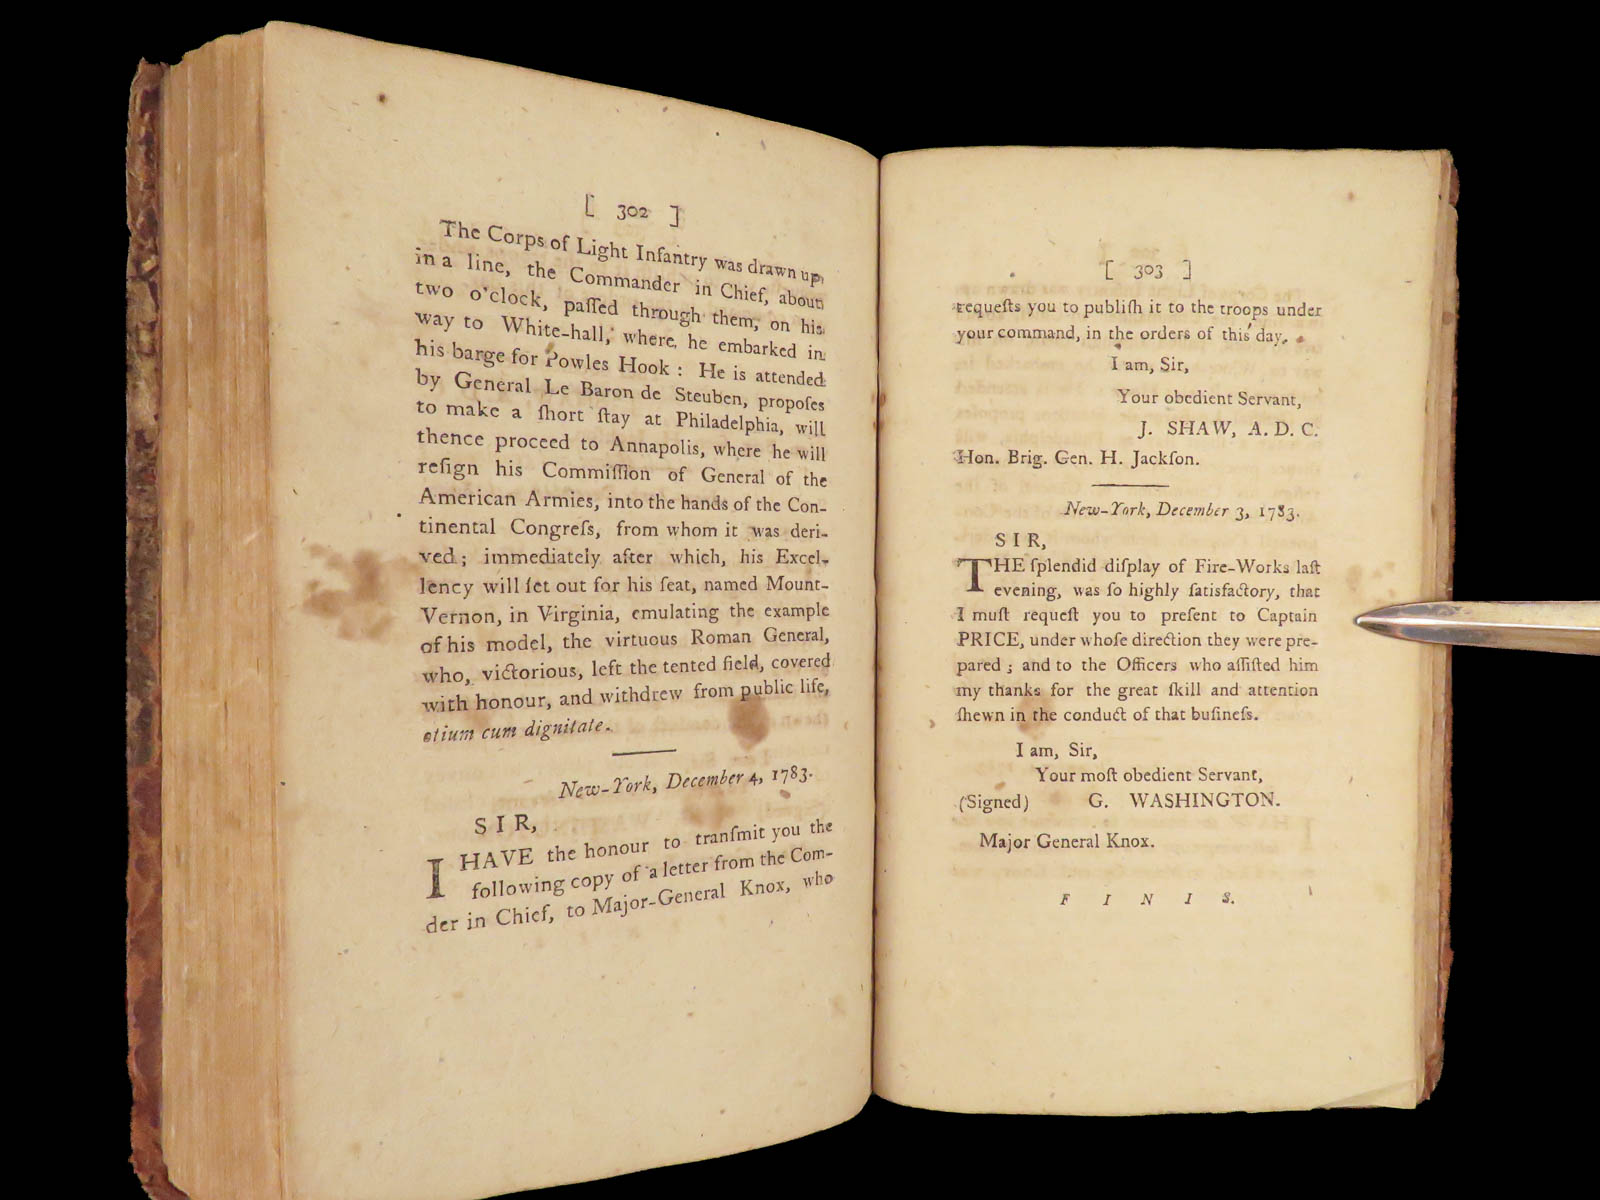 [ 302 ]
The Corps of Light Infantry was drawn up,
in a line, the Commander in Chief, about
two o'clock, paſſed through them, on his
way to White-hall, where he embarked in
his barge for Powles Hook : He is attended
by General Le Baron de Steuben, propoſes
to make a ſhort ſtay at Philadelphia, will
thence proceed to Annapolis, where he will
reſign his Commiſſion of General of the
American Armies, into the hands of the Con-
tinental Congreſs, from whom it was deri-
ved ; immediately after which, his Excel-
lency will ſet out for his ſeat, named Mount-
Vernon, in Virginia, emulating the example
of his model, the virtuous Roman General,
who, victorious, left the tented field, covered
with honour, and withdrew from public life,
otium cum dignitate.
New-York, December 4, 1783.
S I R,
I HAVE the honour to tranſmit you the
following copy of a letter from the Com-
der in Chief, to Major-General Knox, who
[ 303 ]
requeſts you to publiſh it to the troops under
your command, in the orders of this day.
I am, Sir,
Your obedient Servant,
J. SHAW, A. D. C.
Hon. Brig. Gen. H. Jackſon.
New-York, December 3, 1783.
S I R,
THE ſplendid diſplay of Fire-Works laſt
evening, was ſo highly ſatisfactory, that
I muſt requeſt you to preſent to Captain
PRICE, under whoſe direction they were pre-
pared ; and to the Officers who aſſiſted him
my thanks for the great ſkill and attention
ſhewn in the conduct of that buſineſs.
I am, Sir,
Your moſt obedient Servant,
(Signed) G. WASHINGTON.
Major General Knox.
F I N I S.